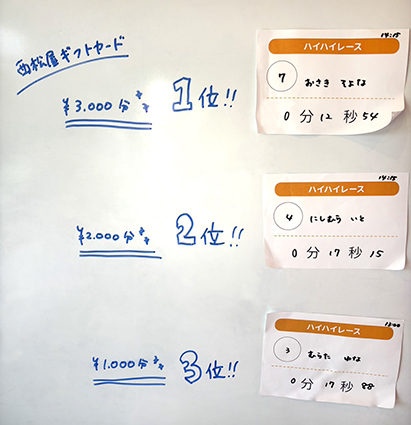 西松屋ギフトカード
¥3.000分 1位!!
14:15
ハイハイレース
7 おさき そよな
0分12秒54
¥2.000分 2位!!
14:15
ハイハイレース
4 にしむら いと
0分17秒15
¥1.000分 3位!!
13:00
ハイハイレース
3 むらた ゆな
0分17秒88